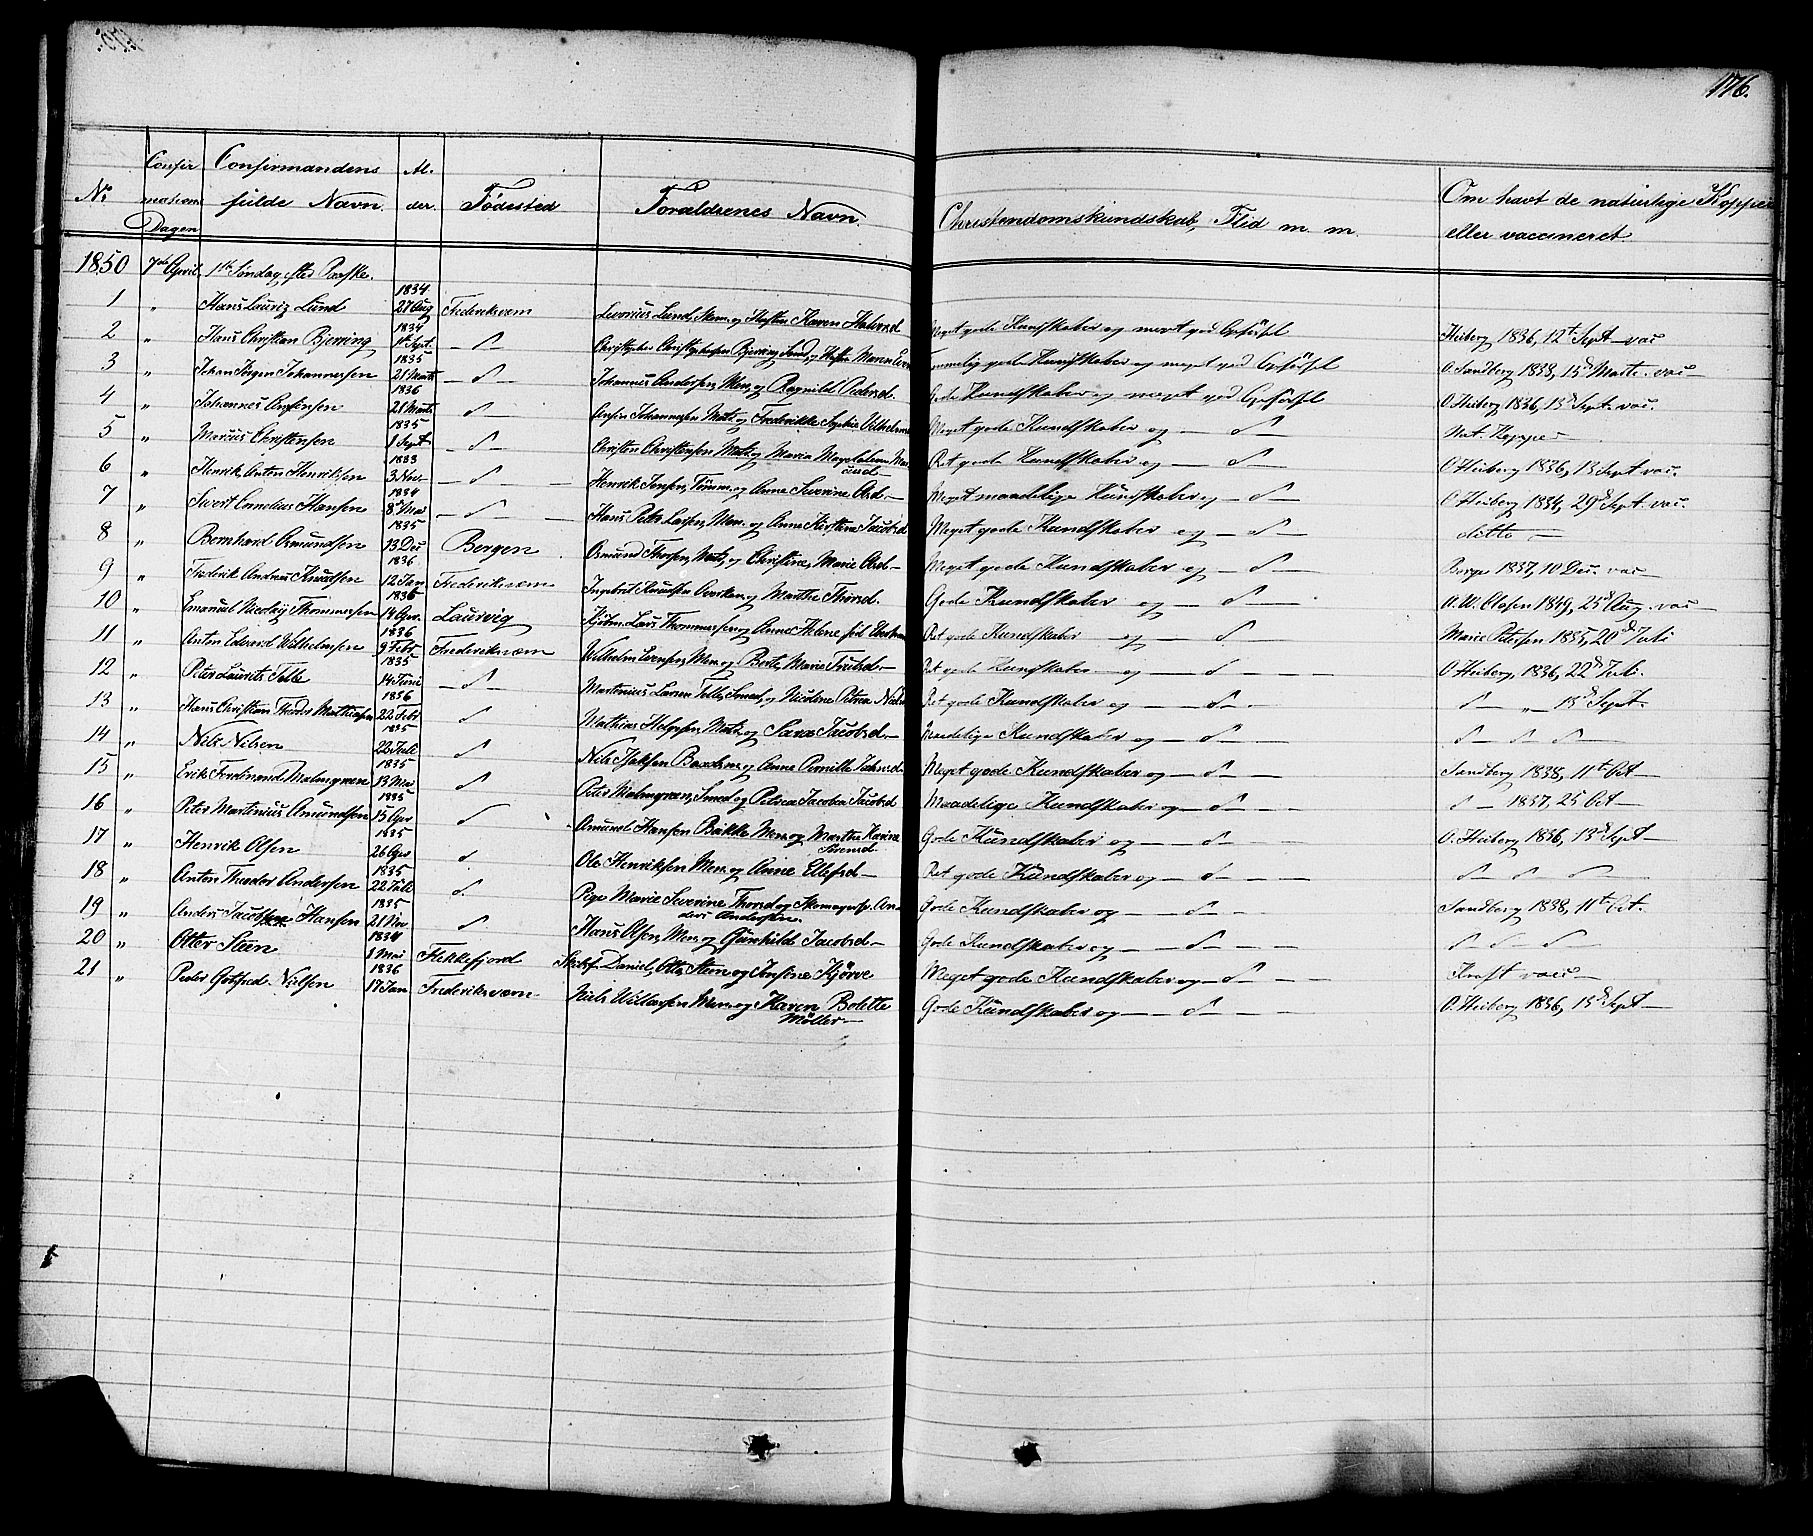 176.
No Confirmations Dagen Confirmandens fulde Navn. Alder. Fødested Forældrenes Navn. Christendomskundskab, Flid m. m. Om havt de naturlige Kopper eller vaccineret.
1850 7de April. 1ste Søndag efter Paaske.
1 " Hans Lauriz Lund 1834 27 Aug Frederiksværn Laurius Lund, Mem. og Hustru Karen Halvorsd Meget gode Kundskaber og meget god Opførsel Heiberg 1836, 12te Sept vac
2 " Hans Christian Bjerring 1834 1ste Sept. — d — Christopher Christophersen Bjerring Smed, og Hustru Maren Temmelig gode Kundskaber og meget god Opførsel O. Sandberg 1838, 15de Marts. vac —
3 " Johan Jørgen Johannessen 1835 21 Marts — d — Johannes Andersen, Mem, og Ragnild Pedersd. Gode Kundskaber og meget god Opførsel O. Heiberg 1836, 13de Sept. vac.
4 " Johannes Anfinsen 1836 28 Marts — d — Anfin Johannessen Matr. og Frederikke Sophie Vilhelmine Meget gode Kundskaber og — d — Nat. Kopper —
5 " Marcus Christensen 1835 1 Sept — d — Christen Christensen Matr. og Maria Magdalena Marcusd — Ret gode Kundskaber og — d — O. Heiberg 1836, 13 Sept vac.
6 " Henrik Anton Henriksen 1833 3 Nov — d — Henrik Jensen, Tømm. og Anne Severine Olsd. — Meget maadelige Kundskaber og — d — O. Heiberg 1834, 29de Sept. vac.
7 " Sivert Cornelius Hansen 1834 8de Mai — d — Hans Peter Larsen, Mem. og Anne Kirstine Jacobsd Meget gode Kundskaber og — d — ditto —
8 " Bernhard Osmundsen 1835 13 Dec Bergen Osmund Thorsen, Matr, og Christine Marie Olsd — Meget gode Kundskaber og — d — Berge 1837, 10 Dec. vac —
9 " Fredrik Andreas Knudsen 1836 12 Jan Frederiksværn Ingebret Knudsen og Marthe Thorsd. Gode Kundskaber og — d — A. W. Olsen 1849, 25de Aug. vac —
10 " Emanuel Nicolay Thommessen 1836 14 Apr. Laurvig Kjøbm. Lars Thommessen og Anne Helene Ret gode Kundskaber og — d — Marie Petersen 1835, 20de Juli
11 " Anton Edvard Wilhelmsen 1836 9 Febr Frederiksværn Wilhelm Evensen, Mem og Berte Marie Ret gode Kundskaber og — d — O. Heiberg 1836, 22de Juli.
12 " Peter Laurits Telle 1835 14 Juni — d — Martinius Larsen Telle, Smed, og Nicoline Petrea Ret gode Kundskaber og — d — d — " — 13de Sept.
13 " Hans Christian Theodor Mathiesen 1836 22 Febr d Mathias Helgesen Matr. og Sara Jacobsd. — Maadelige Kundskaber og — d — d — d — d —
14 " Nils Nilsen 1835 22 Juli d Nils Isaksen og Anne Pernille Meget gode Kundskaber og — d — Sandberg 1838, 11te Oct —
15 " Erik Ferdinand Malmgren 1835 13 Mai d Peter Malmgren, Smed og Petrea Jacobea Jacobsd Maadelige Kundskaber og — d — d — 1837, 25 Oct —
16 " Peter Martinius Amundsen 1835 15 Apr d Amund Hansen Bakke Mem. og Marthe Karine Sørensd. Gode Kundskaber og — d — O. Heiberg 1836, 13de Sept —
17 " Henrik Olsen 1835 26 Apr d. Ole Henriksen Mem. og Anne Ellefsd — Ret gode Kundskaber og — d — d — d — d —
18 " Anton Theodor Andersen 1835 22 Juli d. Pige Marie Severine Thorsd og Skomagersv. Anders Andersen. Gode Kundskaber og — d — Sandberg 1838, 11te Oct.
19 " Anders Jacobsen Hansen 1835 21 Nov d Hans Olsen, Mem. og Gunhilde Jacobsd — Gode Kundskaber og — d — d d d —
20 " Otter Steen 1834 1 Mai Flekkefjord Daniel, Otto Steen og Josefine Kjørve Meget gode Kundskaber og — d — Kraft vac —
21 " Peder Gotfred Nielsen 1836 17 Jan Frederiksværn. Niels Willassen Mem. og Karen Bolette Møller — Gode Kundskaber og — d — O. Heiberg 1836, 13de Sept —